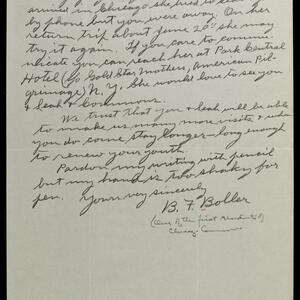 arrived in Chicago she tried to call you
by phone but you were away. On her
return trip about June 20th she may
try it again. If you care to commu-
nicate you can reach her at Park Central
Hotel (% Gold Star Mothers, American Pil-
grimage) N.Y. She would love to see you
& Leah &
We trust that you & Leah will be able
to make us many more visits & when
you do come stay longer – long enough
to renew your youth.
Pardon my writing with pencil
but my hand is too shaky for
pen. Yours very sincerely
B. F. Boller
(One of the first residents of
Chicago Commons